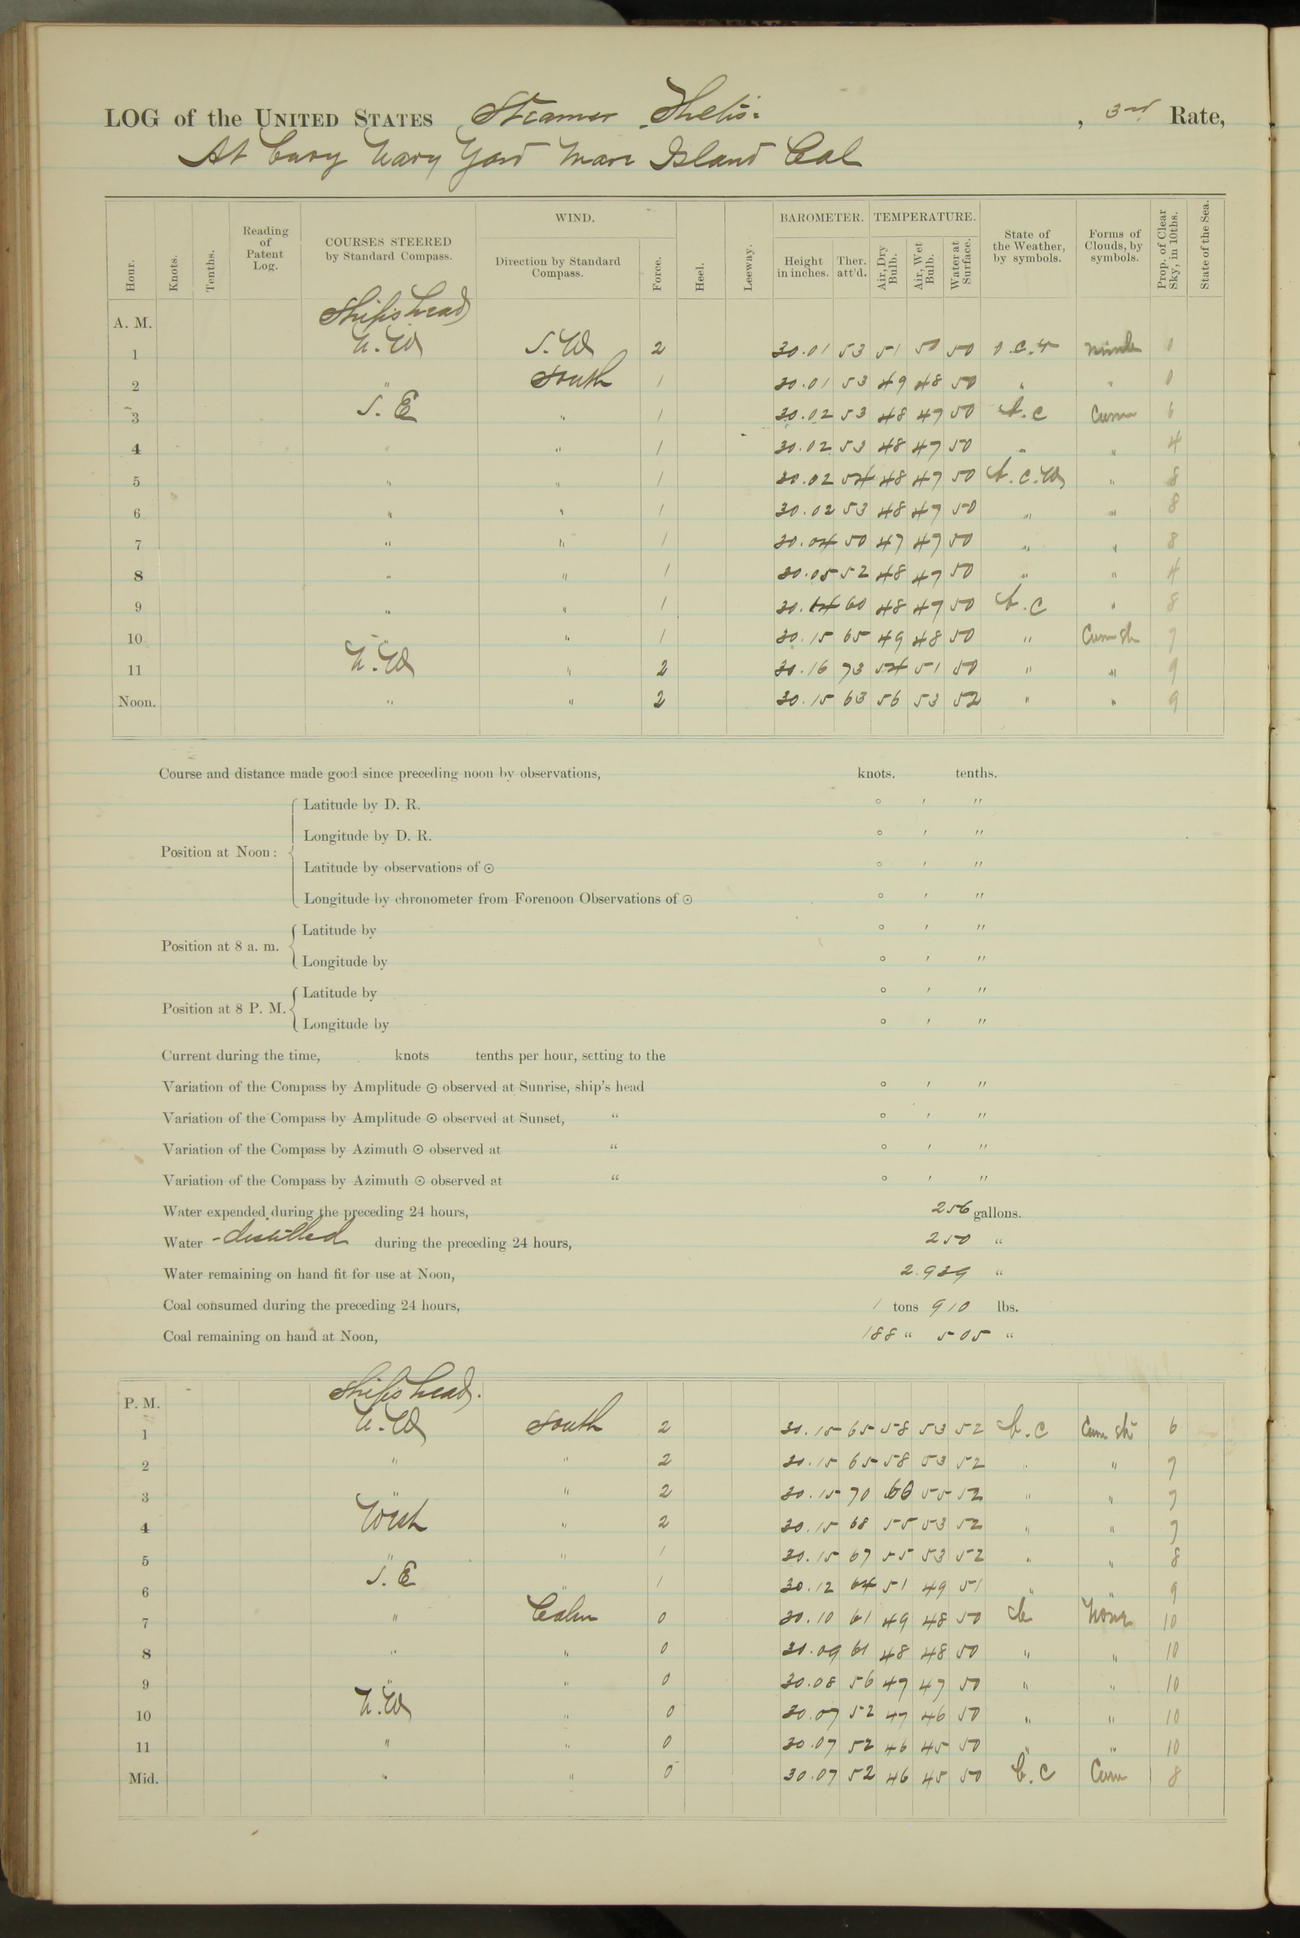 LOG of the UNITED STATES Steamer Thetis. , 3rd Rate,
At Buoy Navy Yard Mare Island Cal
Hour. Knots. Tenths. Reading of Patent Log. COURSES STEERED by Standard Compass. WIND. Direction by Standard Compass. Force. Heel. Leeway. BAROMETER. Height in inches. Ther. att'd. TEMPERATURE. Air, Dry Bulb. Air, Wet Bulb. Water at Surface. State of the Weather, by symbols. Forms of Clouds, by symbols. Prop. of Clear Sky, in 10ths. State of the Sea.
A. M. Ship's head
1 N.W S.W 2 30.01 53 51 50 50 o.c.r Nimb 0
2 " South 1 30.01 53 49 48 50 " " 0
3 S.E " 1 30.02 53 48 47 50 b.c Cum 6
4 " " 1 30.02 53 48 47 50 " " 4
5 " " 1 30.02 54 48 47 50 b.c.w " 8
6 " " 1 30.02 53 48 47 50 " " 8
7 " " 1 30.04 50 47 47 50 " " 8
8 " " 1 30.05 52 48 47 50 " " 4
9 " " 1 30.14 60 48 47 50 b.c " 8
10 " " 1 30.15 65 49 48 50 " Cum st 7
11 N.W " 2 30.16 73 54 51 50 " " 9
Noon. " " 2 30.15 63 56 53 52 " " 9
Course and distance made good since preceding noon by observations, knots. tenths.
Position at Noon: Latitude by D. R. ° ' "
Longitude by D. R. ° ' "
Latitude by observations of ☉ ° ' "
Longitude by chronometer from Forenoon Observations of ☉ ° ' "
Position at 8 a. m. Latitude by ° ' "
Longitude by ° ' "
Position at 8 P. M. Latitude by ° ' "
Longitude by ° ' "
Current during the time, knots tenths per hour, setting to the
Variation of the Compass by Amplitude ☉ observed at Sunrise, ship's head ° ' "
Variation of the Compass by Amplitude ☉ observed at Sunset, " ° ' "
Variation of the Compass by Azimuth ☉ observed at " ° ' "
Variation of the Compass by Azimuth ☉ observed at " ° ' "
Water expended during the preceding 24 hours, 256 gallons.
Water distilled during the preceding 24 hours, 250 "
Water remaining on hand fit for use at Noon, 2.939 "
Coal consumed during the preceding 24 hours, 1 tons 910 lbs.
Coal remaining on hand at Noon, 188 " 505 "
P. M. Ship's head.
1 N.W South 2 30.15 65 58 53 52 b.c Cum st 6
2 " " 2 30.15 65 58 53 52 " " 7
3 " " 2 30.15 70 60 55 52 " " 7
4 West " 2 30.15 68 55 53 52 " " 7
5 " " 1 30.15 67 55 53 52 " " 8
6 S.E " 1 30.12 64 51 49 51 " " 9
7 " Calm 0 30.10 61 49 48 50 b None 10
8 " " 0 30.09 61 48 48 50 " " 10
9 " " 0 30.08 56 47 47 50 " " 10
10 N.W " 0 30.07 52 47 46 50 " " 10
11 " " 0 30.07 52 46 45 50 " " 10
Mid. " " 0 30.07 52 46 45 50 b.c Cum 8